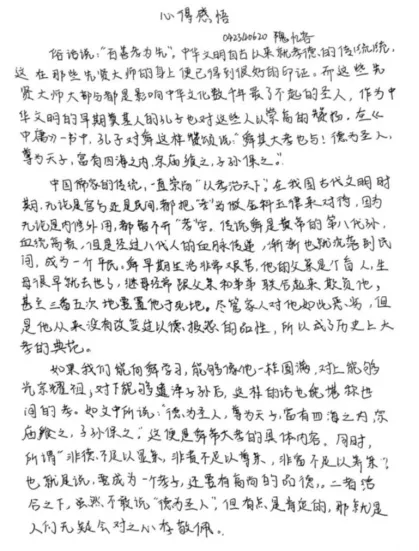 心得感悟
0423110620
俗话说：“百善孝为先”，中华文明自古以来就孝德的传统，
这在那些先贤大师的身上便已得到很好的印证。而这些先
贤大师大都都是影响中华文化数千年最了不起的圣人，作为中
华文明的早期奠基人的孔子也对这些人以崇高的赞扬。在《
中庸》一书中，孔子对舜这样赞颂说：“舜其大孝也与！德为圣人，
尊为天子，富有四海之内，宗庙飨之，子孙保之。”
中国儒家的传统，一直崇尚“以孝治天下”。在我国古代文明时
期，无论是官方还是民间，都把“孝”当做金科玉律来对待，因为
无论是内修外闯，都离不开“孝”字。传说舜是黄帝的第八代孙，
血统高贵，但是经过八代人的血脉传递，渐渐也就沦落到民
间，成为一个平民。舜早期生活非常艰苦，他的父亲是个盲人，生
母很早就去世了，继母经常跟父亲和弟弟联合起来欺负他，
甚至三番五次地要置他于死地。尽管家人对他如此恶劣，但
是他从来没有改变过以德报怨的品性，所以成了历史上大
孝的典范。
如果我们能向舜学习，能够像他一样圆满，对上能够
光宗耀祖，对下能够遗泽子孙后，这样的话也能堪称世
间的孝。如文中所说：“德为圣人，尊为天子，富有四海之内，宗
庙飨之，子孙保之。”这便是舜帝大孝的具体内容。同时，
所谓“非德不足以显亲，非贵不足以尊亲，非富不足以养亲”？
也就是说，要成为一个孝子，还要有高尚的品德，二者结
合之下，虽然不敢说“德为圣人”，但有点是肯定的，那就是
人们无疑会对之心存敬佩。